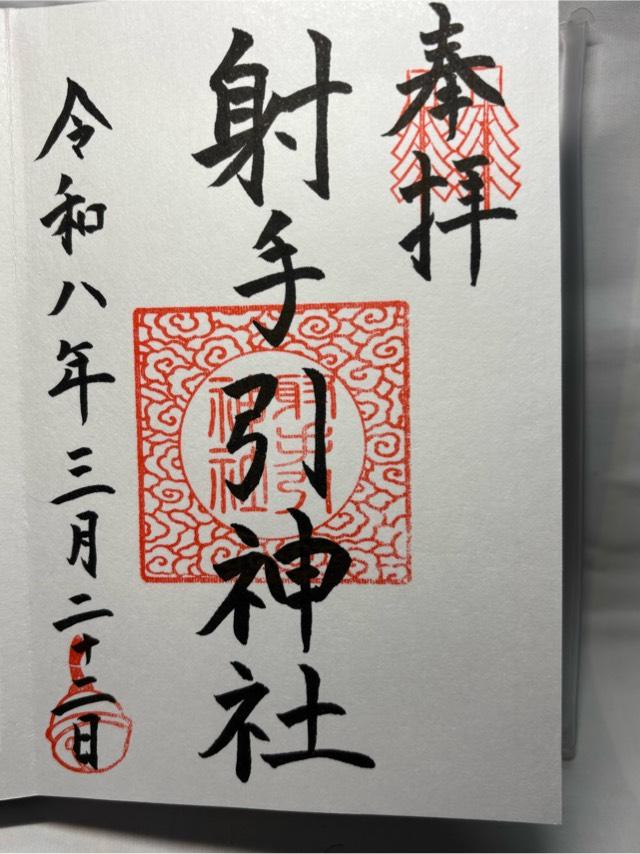 奉拝
射手引神社
射手引
神社
令和八年三月二十二日